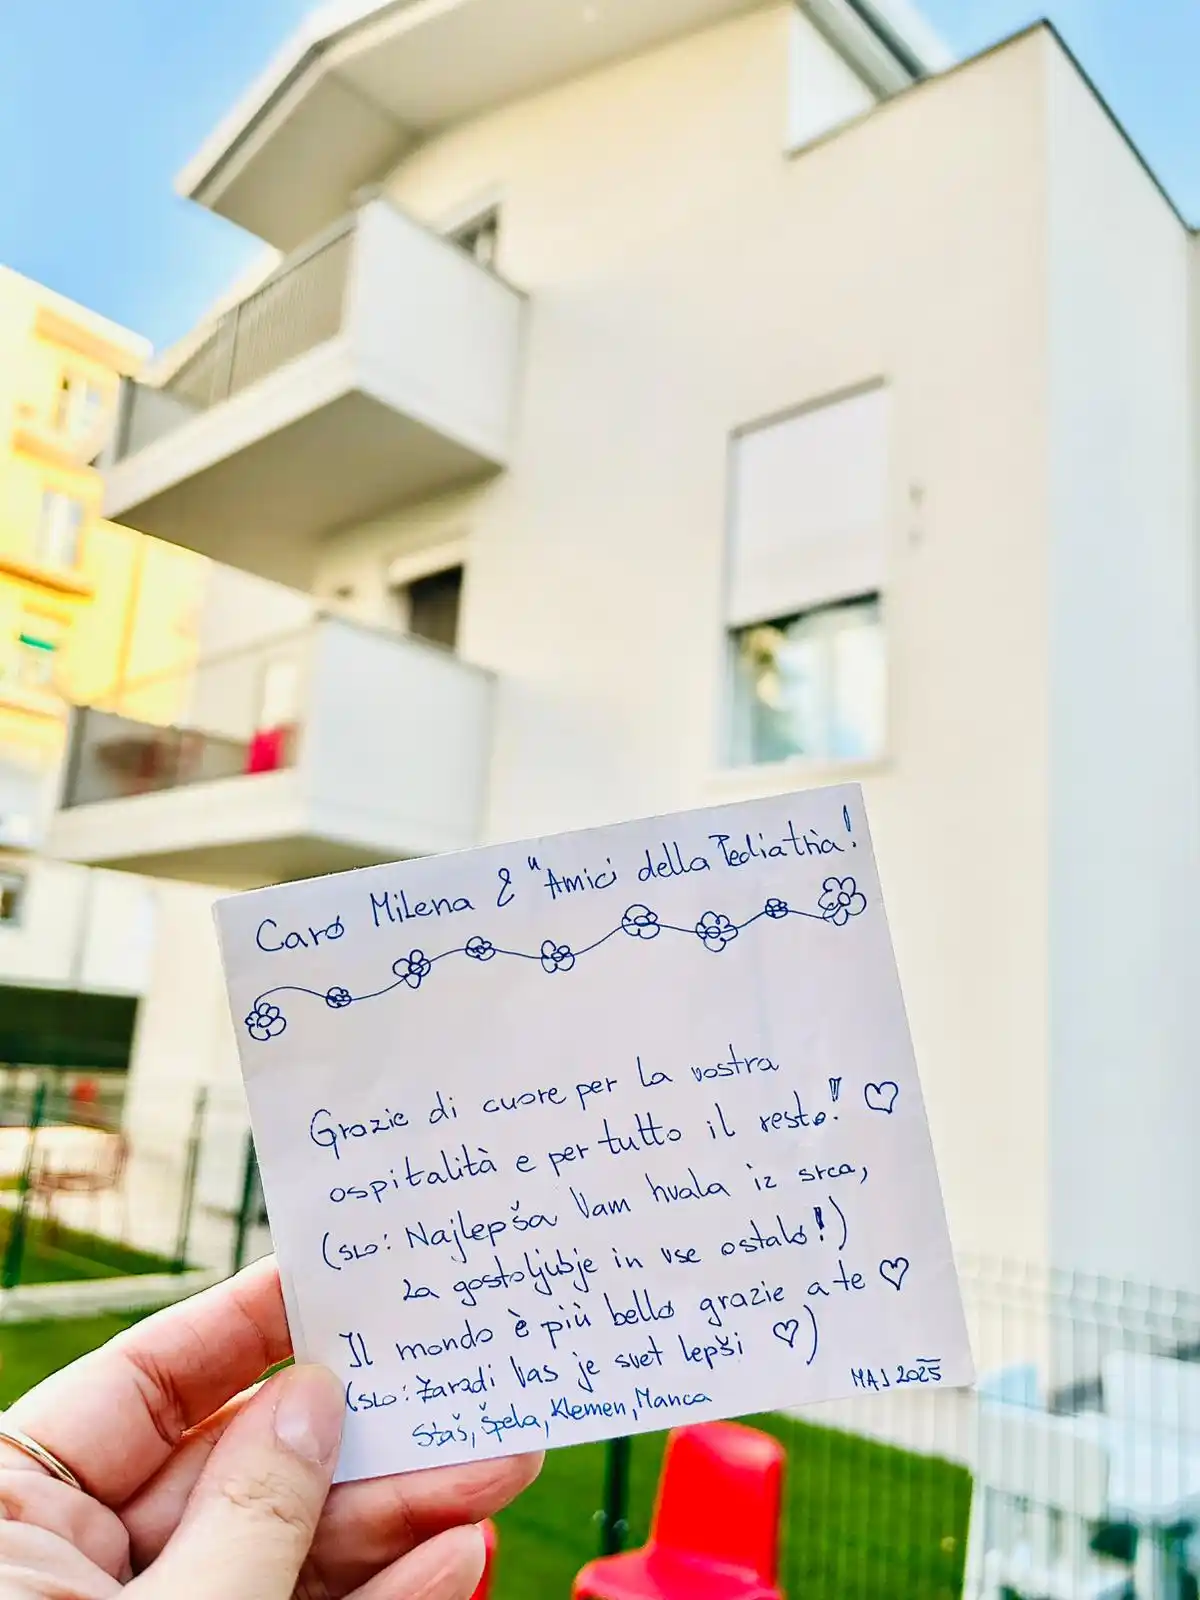 Caro Milena & "Amici della Pediatria!
Grazie di cuore per la vostra
ospitalità e per tutto il resto! ♡
(SLO: Najlepša Vam hvala iz srca,
za gostoljubje in vse ostalo!)
Il mondo è più bello grazie a te ♡
(SLO: Zaradi Vas je svet lepši ♡)
Staš, Špela, Klemen, Manca
MAJ 2025